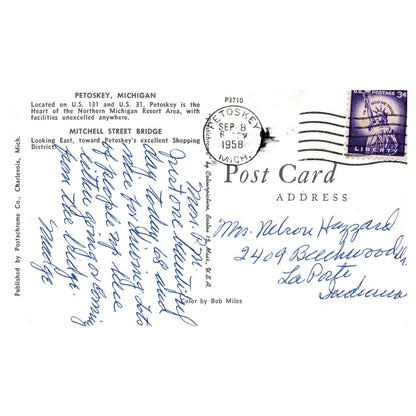 PETOSKEY, MICHIGAN
Located on U.S. 131 and U.S. 31, Petoskey is the
Heart of the Northern Michigan Resort Area, with
facilities unexcelled anywhere.
MITCHELL STREET BRIDGE
Looking East, toward Petoskey's excellent Shopping
District.
Published by Postachrome Co., Charlevoix, Mich.
Mon. P.M.
Just one beautiful
day today and
nice for driving. Lots
of people not
either going or coming
from the Bridge.
Madge
P3710
PETOSKEY
SEP 8
PM
1958
MICH.
U.S. POSTAGE 3¢
IN GOD WE TRUST
LIBERTY
Post Card
ADDRESS
Mrs. Nelson Hazzard
2409 Beechwood
La Porte
Indiana
Color by Bob Miles
by Colourpicture, Boston 15, Mass., U.S.A.